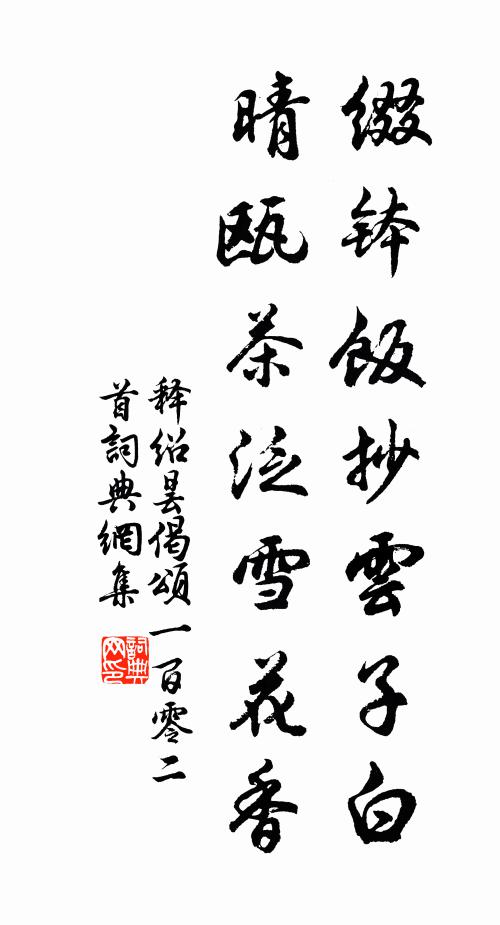 缀钵饭抄雲子白
晴瓯茶泛雪花香
释绍昙偈頌一百零二
首詞典網集
詞典
网印